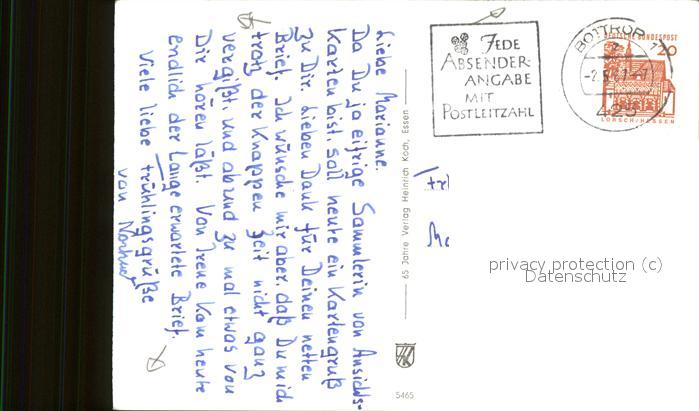 Liebe Marianne.
Da Du ja eifrige Sammlerin von Ansichts-
Karten bist, soll heute ein Kartengruß
zu Dir. Lieben Dank für Deinen netten
Brief. Ich wünsche mir aber, daß Du mich
trotz der Knappen Zeit nicht ganz
vergißt, und abund zu mal etwas von
Dir hören läßt. Von Irene Kam heute
endlich der Lange erwartete Brief.
Viele liebe Frühlingsgrüße
von
65 Jahre Verlag Heinrich Koch, Essen
5465
JEDE
ABSENDER-
ANGABE
MIT
POSTLEITZAHL
BOTTROP 1
425
DEUTSCHE BUNDESPOST
20
LORSCH/HESSEN
privacy protection (c)
Datenschutz